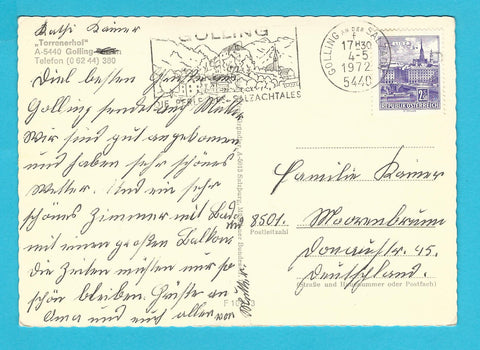 Kathi Kainer
"Torrenerhof"
A-5440 Golling
Telefon (0 62 44) 380
GOLLING
DIE PERLE DES SALZACHTALES
GOLLING AN DER SALZACH
17H30
4-5
1972
5440
REPUBLIK ÖSTERREICH
Viel besten Grüsse aus
Golling sendet Mutter
Wir sind gut angekommen
und haben sehr schönes
Wetter. Und ein sehr
schönes Zimmer mit Bad
und
mit einen großen Balkon.
die Zeiten müssen nur so
schön bleiben. Grüsse an
Oma und euch allen von
Familie Kainer
8501. Moorenbrunn
Postleitzahl
Donaustr. 45.
Deutschland.
(Straße und Hausnummer oder Postfach)